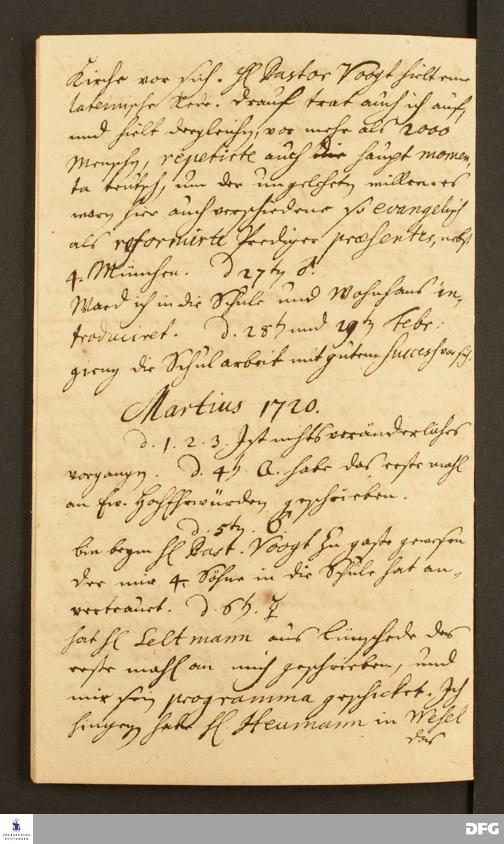 Kirche vor sich. HE Pastor Voogt hielt eine
lateinische Rede. drauf trat auch ich auf,
und hielt dergleichen, vor mehr als 2000
Menschen, repetirte auch die haupt momen,
ta teutsch, um der ungelehrten willen. es
waren hier auch verschiedene so evangelisch
als reformirte Prediger praesentes, nebst
4. München. d 27ten ♂.
Ward ich in die Schule und Wohnhaus in,
troduciret. d. 28t und 29ten Febr:
gieng die Schularbeit mit gutem Success vor sich.
Martius 1720.
d. 1. 2. 3. Ist nichts veränderliches
vorgangen. d. 4t. habe das erste mahl
an Ew. HochEhrwürden geschrieben.
d. 5ten.
bin beym HE Past. Voogt zu gaste gewesen
der mir 4. Söhne in die Schule hat an,
vertrauet. d. 6t. ☿
hat HE Leltmann aus Lünschede das
erste mahl an mich geschrieben, und
mir sein programma geschicket. Ich
hingegen habe HE. Heumann in Wesel
das
FRANCKESCHE
STIFTUNGEN
DFG